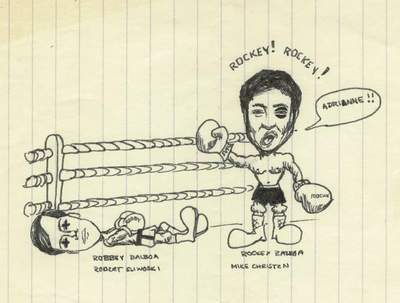 ROCKEY! ROCKEY!
ADRIANNE!!
ROBBEY BALBOA
ROBERT
ROCKEY BALBOA
MIKE CHRISTEN